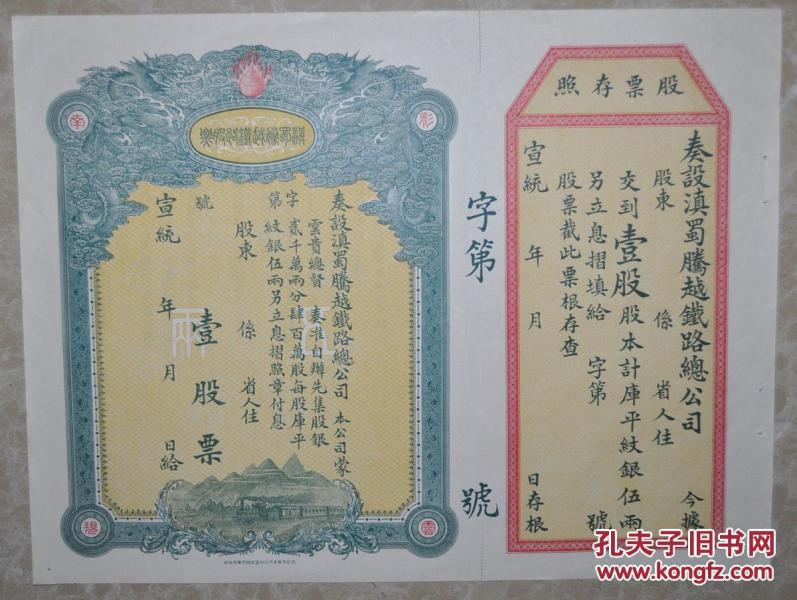 股票存照
奏設滇蜀騰越鐵路總公司 今據
股東 係 省人住
交到壹股股本計庫平紋銀伍兩
另立息摺填給 字第 號
股票截此票根存查
宣統 年 月 日存根
字第 號
滇蜀騰越鐵路股票
彩
南
奏設滇蜀騰越鐵路總公司 本公司蒙
雲貴總督 奏准自辦先集股銀
貳千萬兩分肆百萬股每股庫平
紋銀伍兩另立息摺照章付息
字第 號
股東 係 省人住
壹股票
宣統 年 月 日給
五
兩
雲
碧
孔夫子旧书网
www.kongfz.com